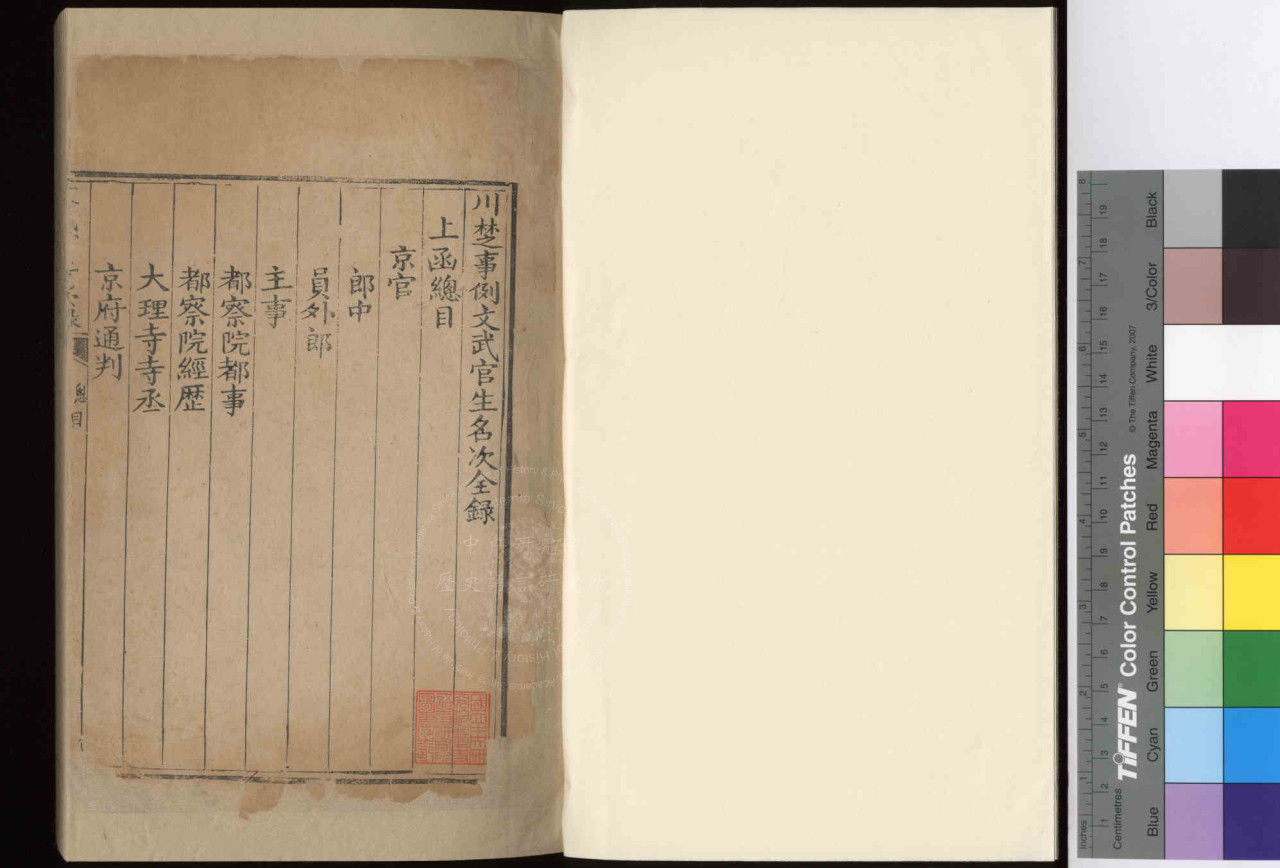 川楚事例文武官生名次全錄
上函總目
京官
郎中
員外郎
主事
都察院都事
都察院經歷
大理寺寺丞
京府通判
總目
中央研究院
歷史語言研究所
Inches
1
2
3
4
5
6
7
8
Centimetres
1
2
3
4
5
6
7
8
9
10
11
12
13
14
15
16
17
18
19
TIFFEN Color Control Patches
© The Tiffen Company, 2007
Blue
Cyan
Green
Yellow
Red
Magenta
White
3/Color
Black